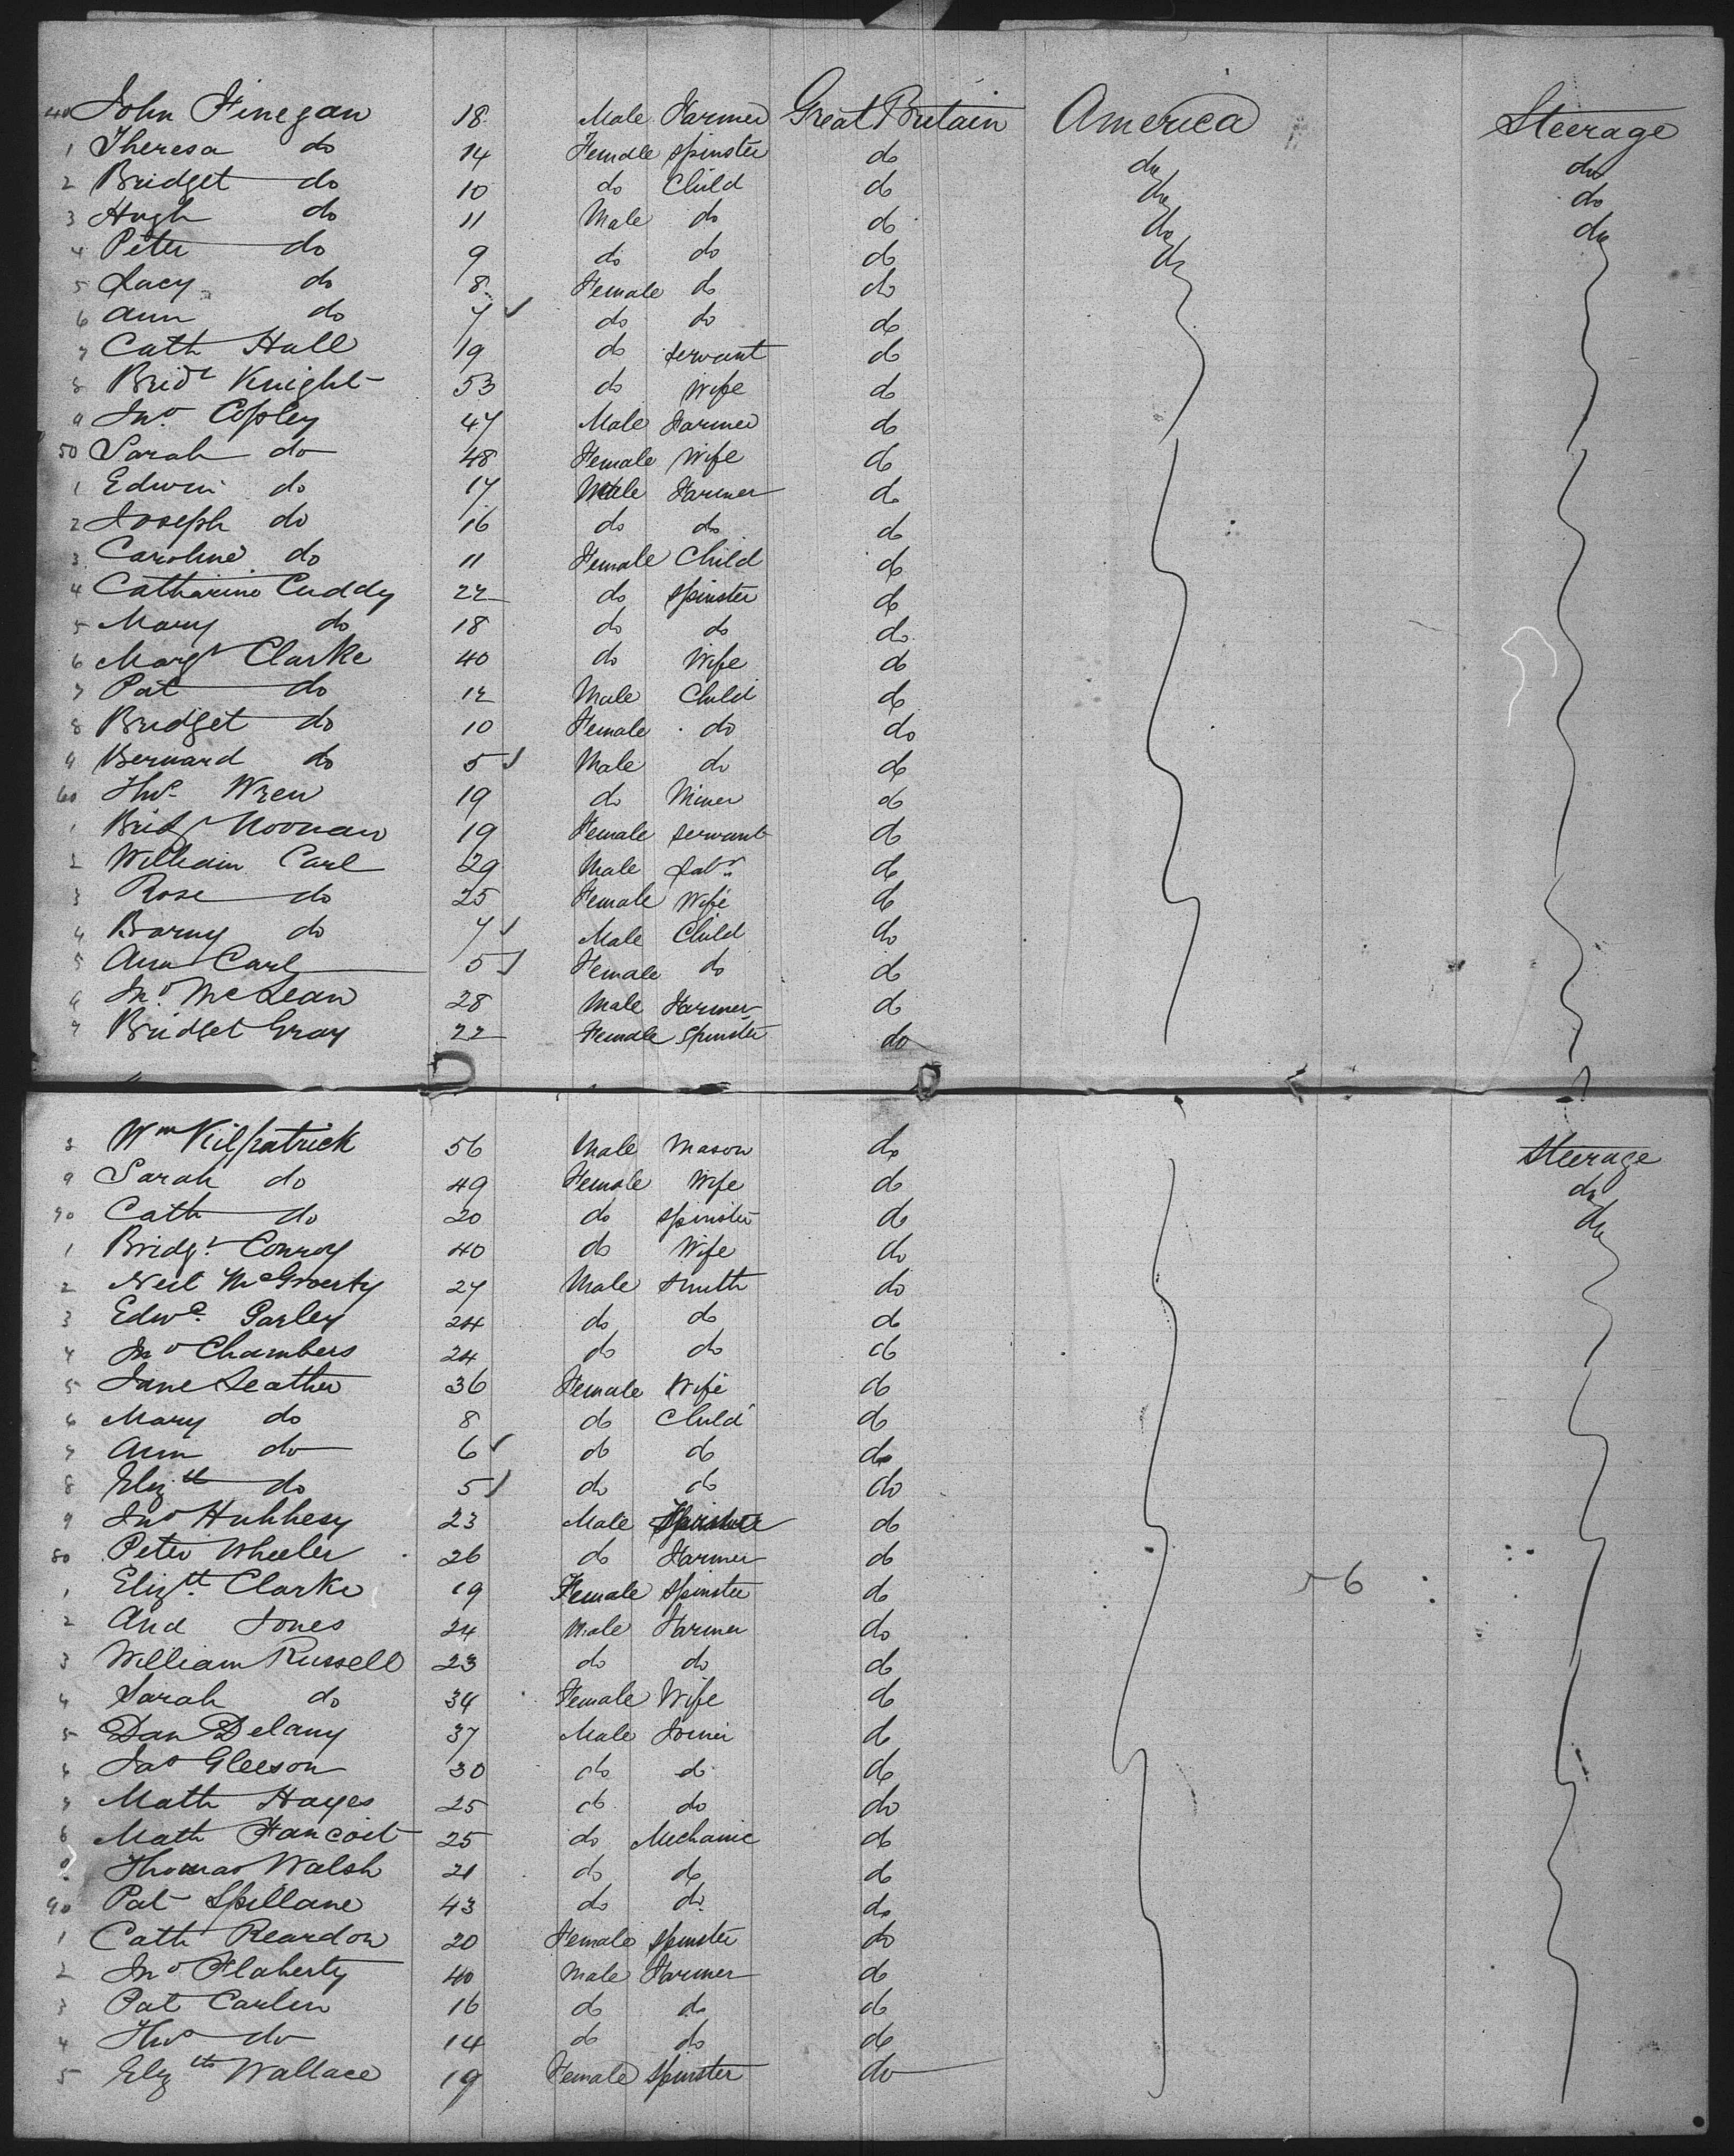 40 John Finegan 18 Male Farmer Great Britain America Steerage
1 Theresa do 14 Female Spinster do do do
2 Bridget do 10 do Child do do do
3 Hugh do 11 Male do do do do
4 Peter do 9 do do do do
5 Lacy do 8 Female do do
6 Ann do 7 do do do
7 Cath Hall 19 do Servant do
8 Bridt Knight 53 do Wife do
9 Jno Copley 47 Male Farmer do
50 Sarah do 48 Female Wife do
1 Edwin do 17 Male Farmer do
2 Joseph do 16 do do do
3 Caroline do 11 Female Child do
4 Catharine Cuddy 22 do Spinster do
5 Mary do 18 do do do
6 Margt Clarke 40 do Wife do
7 Pat do 12 Male Child do
8 Bridget do 10 Female do do
9 Bernard do 5 Male do do
60 Thos Wren 19 do Miner do
1 Bridgt Noonan 19 Female Servant do
2 William Carl 29 Male Labr do
3 Rose do 25 Female Wife do
4 Barny do 7 Male Child do
5 Ann Carl 5 Female do do
6 Jno McLean 28 Male Farmer do
7 Bridget Gray 22 Female Spinster do
8 Wm Kilpatrick 56 Male Mason do Steerage
9 Sarah do 49 Female Wife do do
70 Cath do 20 do Spinster do do
1 Bridgt Conroy 40 do Wife do
2 Neil McGroerty 27 Male Smith do
3 Edwd Garley 24 do do do
4 Jno Chambers 24 do do do
5 Jane Leather 36 Female Wife do
6 Mary do 8 do Child do
7 Ann do 6 do do do
8 Elizth do 5 do do do
9 Jno 23 Male do
80 Peter Wheeler 26 do Farmer do
1 Elizth Clarke 19 Female Spinster do 56
2 And Jones 24 Male Farmer do
3 William Russell 23 do do do
4 Sarah do 34 Female Wife do
5 Dan Delany 37 Male Joiner do
6 Jas Gleeson 30 do do do
7 Math Hayes 25 do do do
8 Math 25 do Mechanic do
9 Thomas Walsh 21 do do do
90 Pat Spillane 43 do do do
1 Cath Reardon 20 Female Spinster do
2 Jno Flaherty 40 Male Farmer do
3 Pat Carlin 16 do do do
4 Thos do 14 do do do
5 Elizth Wallace 19 Female Spinster do